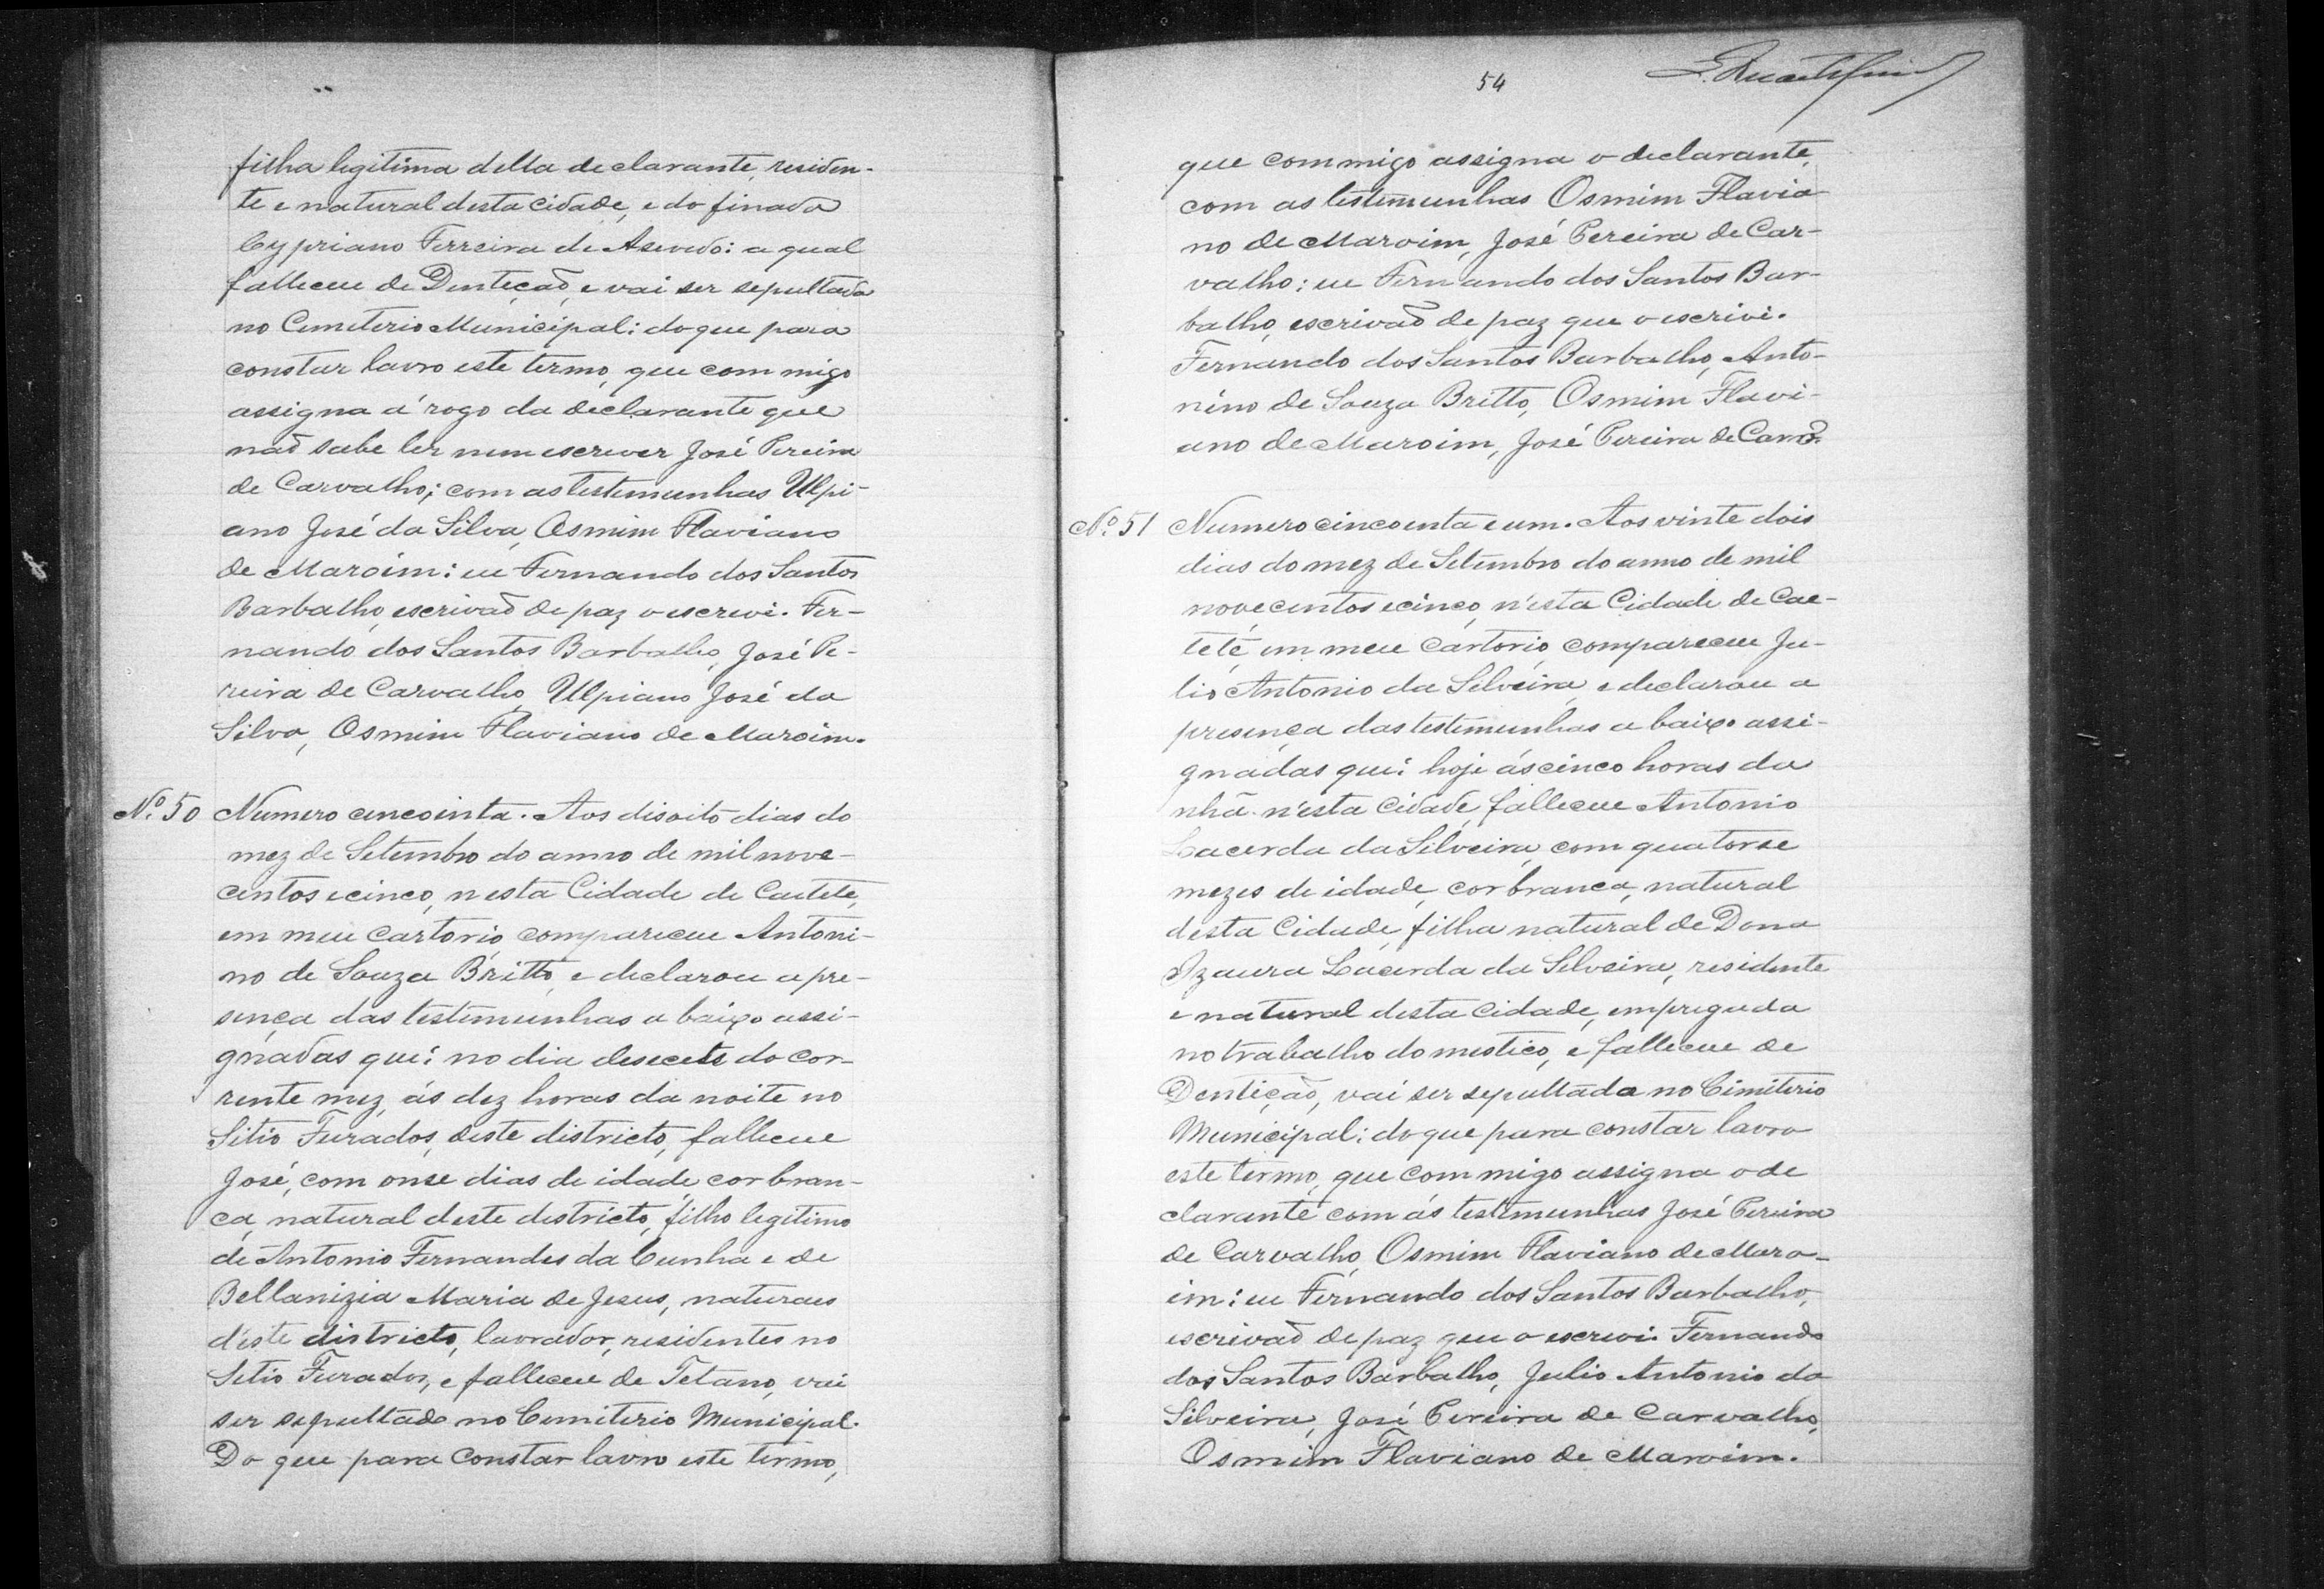 filha legitima della declarante, residen-
te e natural desta cidade, e do finado
Cypriano Ferreira de Asevedo: a qual
falleceu de Dentiçaõ, e vai ser sepultada
no Cemiterio Municipal: do que para
constar lavro este termo, que commigo
assigna á rogo da declarante que
naõ sabe ler nem escrever José Pereira
de Carvalho; com as testemunhas Ulpi-
ano José da Silva, Osmim Flaviano
de Maroim: eu Fernando dos Santos
Barbalho, escrivaõ de paz o escrevi. Fer-
nando dos Santos Barbalho, José Pe-
reira de Carvalho, Ulpiano José da
Silva, Osmim Flaviano de Maroim.
Nº 50 Numero cincointa. Aos disoito dias do
mez de Setembro do anno de mil nove-
centos e cinco, nesta Cidade de Caeteté,
em meu cartorio compareceu Antoni-
no de Souza Britto, e declarou a pre-
sença das testemunhas a baixo assi-
gnadas que: no dia desecete do cor-
rente mez, ás dez horas da noite no
Sitio Furados, deste districto, falleceu
José, com onse dias de idade, cor bran-
ca, natural deste districto, filho legitimo
de Antonio Fernandes da Cunha e de
Bellanizia Maria de Jesus, naturaes
d'este districto, lavrador, residentes no
Sitio Furados, e falleceu de Tetano, vai
ser sepultado no Cemiterio Municipal.
Do que para constar lavro este termo,
54
que commigo assigna o declarante,
com as testemunhas Osmim Flavia
no de Maroim, José Pereira de Car-
valho: eu Fernando dos Santos Bar-
balho, escrivaõ de paz que o escrivi.
Fernando dos Santos Barbalho, Anto-
nino de Souza Britto, Osmim Flavi-
ano de Maroim, José Pereira de Carvº.
Nº 51 Numero cincoenta e um. Aos vinte dois
dias do mez de Setembro do anno de mil
novecentos e cinco, n'esta Cidade de Cae-
teté em meu cartorio, compareceu Ju-
lio Antonio da Silveira, e declarou a
presença das testemunhas a baixo assi-
gnadas que: hoje ás cinco horas da
nhã n'esta cidade, falleceu Antonio
Lacerda da Silveira, com quatorse
mezes de idade, cor branca, natural
desta Cidade, filha natural de Dona
Izaura Lacerda da Silveira, residente
e natural desta cidade, empregada
no trabalho domestico, e falleceu de
Dentiçaõ, vai ser sepultada no Cimiterio
Municipal: do que para constar lavro
este termo, que commigo assigna o de
clarante com ás testemunhas José Pereira
de Carvalho, Osmim Flaviano de Maro-
im: eu Fernando dos Santos Barbalho,
escrivaõ de paz que o escrevi. Fernando
dos Santos Barbalho, Julio Antonio da
Silveira, José Pereira de Carvalho,
Osmim Flaviano de Maroim.